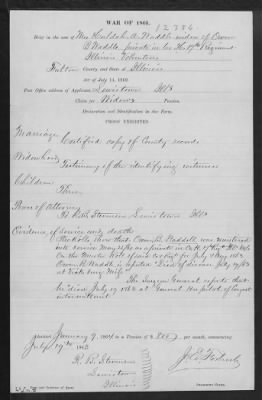 WAR OF 1861.
12786
Brief in the case of Mrs. Huldah A. Waddle widow of Orson
B. Waddle private in Co. H 17th Regiment
Illinois Volunteers
Fulton County and State of Illinois
Act of July 14, 1862
Post Office address of Applicant, Lewistown Ills
Claim for Widow's Pension.
Declaration and Identification in due Form.
PROOF EXHIBITED.
Marriage
Certified copy of County records
Widowhood
Testimony of the identifying witnesses
Children
Power of Attorney
Lewistown Ills
Evidence of Service and death
Rolls show that Orson B. Waddell was mustered
into service May 25/61 as a private in Co. H 17th Reg't Ills Vols
On the Muster Roll of said Co. for July & Aug 1863
Waddle is reported "Died of disease July 19/63
at Vicksburg Miss"
The Surgeon General reports that
he died July 19 1863 at General Hospital of
Admitted January 9, 1864 to a Pension of $8.00 per month, commencing
July 19th 1863
R. B. Stevenson
Lewistown
Illinois
Examining Clerk.